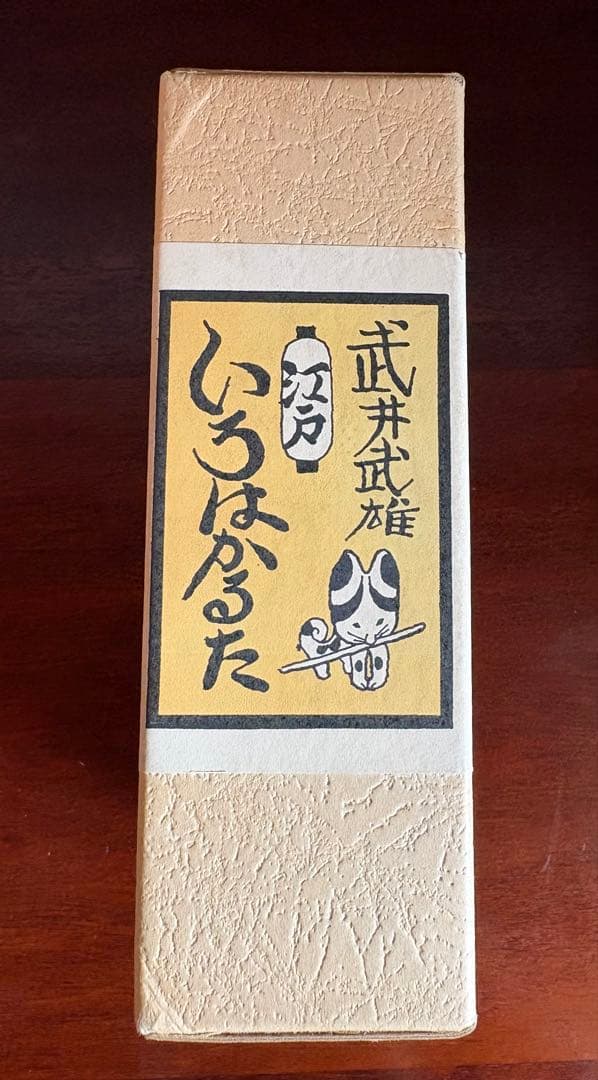 武井武雄
江戸
いろはかるた